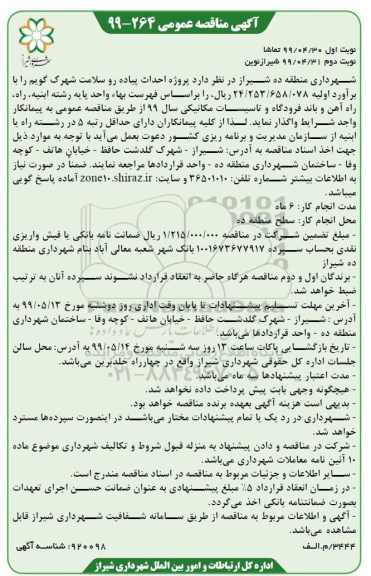 آگهی مناقصه عمومی ۲۶۴-۹۹
نوبت اول ۹۹/۰۴/۳۰ تماشا
نوبت دوم ۹۹/۰۴/۳۱ شیرازنوین
شهرداری منطقه ده شیراز در نظر دارد پروژه احداث پیاده رو سلامت شهرک گویم را با
برآورد اولیه ۲۴/۲۵۳/۶۵۸/۰۷۸ ریال، را براساس فهرست بهاء واحد پایه رشته ابنیه، راه،
راه آهن و باند فرودگاه و تاسیسات مکانیکی سال ۹۹ از طریق مناقصه عمومی به پیمانکار
واجد شرایط واگذار نماید. لذا از کلیه پیمانکاران دارای حداقل رتبه ۵ در رشته راه یا
ابنیه از سازمان مدیریت و برنامه ریزی کشور دعوت بعمل می‌آید با توجه به موارد ذیل
جهت اخذ اسناد مناقصه به آدرس: شیراز - شهرک گلدشت حافظ - خیابان هاتف - کوچه
وفا - ساختمان شهرداری منطقه ده - واحد قراردادها مراجعه نمایند. ضمنا در صورت نیاز
به اطلاعات بیشتر شماره تلفن: ۳۶۵۰۱۰۱۰ و سایت: zone10.shiraz.ir آماده پاسخ گویی
میباشد.
مدت انجام کار: ۶ ماه
محل انجام کار: سطح منطقه ده
- مبلغ تضمین شرکت در مناقصه ۱/۲۱۵/۰۰۰/۰۰۰ ریال ضمانت نامه بانکی یا فیش واریزی
نقدی بحساب سپرده ۱۰۰۱۶۷۳۶۷۷۹۱۷ بانک شهر شعبه معالی آباد بنام شهرداری منطقه
ده شیراز
- برندگان اول و دوم مناقصه هرگاه حاضر به انعقاد قرارداد نشوند سپرده آنان به ترتیب
ضبط خواهد شد.
- آخرین مهلت تسلیم پیشنهادات تا پایان وقت اداری روز دوشنبه مورخ ۹۹/۰۵/۱۳ به
آدرس: شیراز - شهرک گلدشت حافظ - خیابان هاتف - کوچه وفا - ساختمان شهرداری
منطقه ده - واحد قراردادها می‌باشد.
- تاریخ بازگشایی پاکات ساعت ۱۳ روز سه شنبه مورخ ۹۹/۰۵/۱۴ به آدرس: محل سالن
جلسات اداره کل حقوقی شهرداری شیراز واقع در چهارراه خلدبرین می‌باشد.
- مدت اعتبار پیشنهادها سه ماه می‌باشد.
- هیچگونه وجهی بابت پیش پرداخت داده نخواهد شد.
- بدیهی است هزینه آگهی بعهده برنده مناقصه خواهد بود.
- شهرداری در رد یک یا تمام پیشنهادات مختار می‌باشد در اینصورت سپرده‌ها مسترد
خواهد شد.
- شرکت در مناقصه و دادن پیشنهاد به منزله قبول شروط و تکالیف شهرداری موضوع ماده
۱۰ آئین نامه معاملات شهرداری می‌باشد.
- سایر اطلاعات و جزئیات مربوط به مناقصه در اسناد مناقصه مندرج است.
- در زمان انعقاد قرارداد ۵٪ مبلغ پیشنهادی به عنوان ضمانت حسن اجرای تعهدات
بصورت ضمانتنامه بانکی اخذ می‌گردد.
- آگهی و اطلاعات مربوط به مناقصه از طریق سامانه شفافیت شهرداری شیراز قابل
مشاهده می‌باشد.
۳۴۴۴/م.الف
شناسه آگهی: ۹۲۰۰۹۸
اداره کل ارتباطات و امور بین الملل شهرداری شیراز